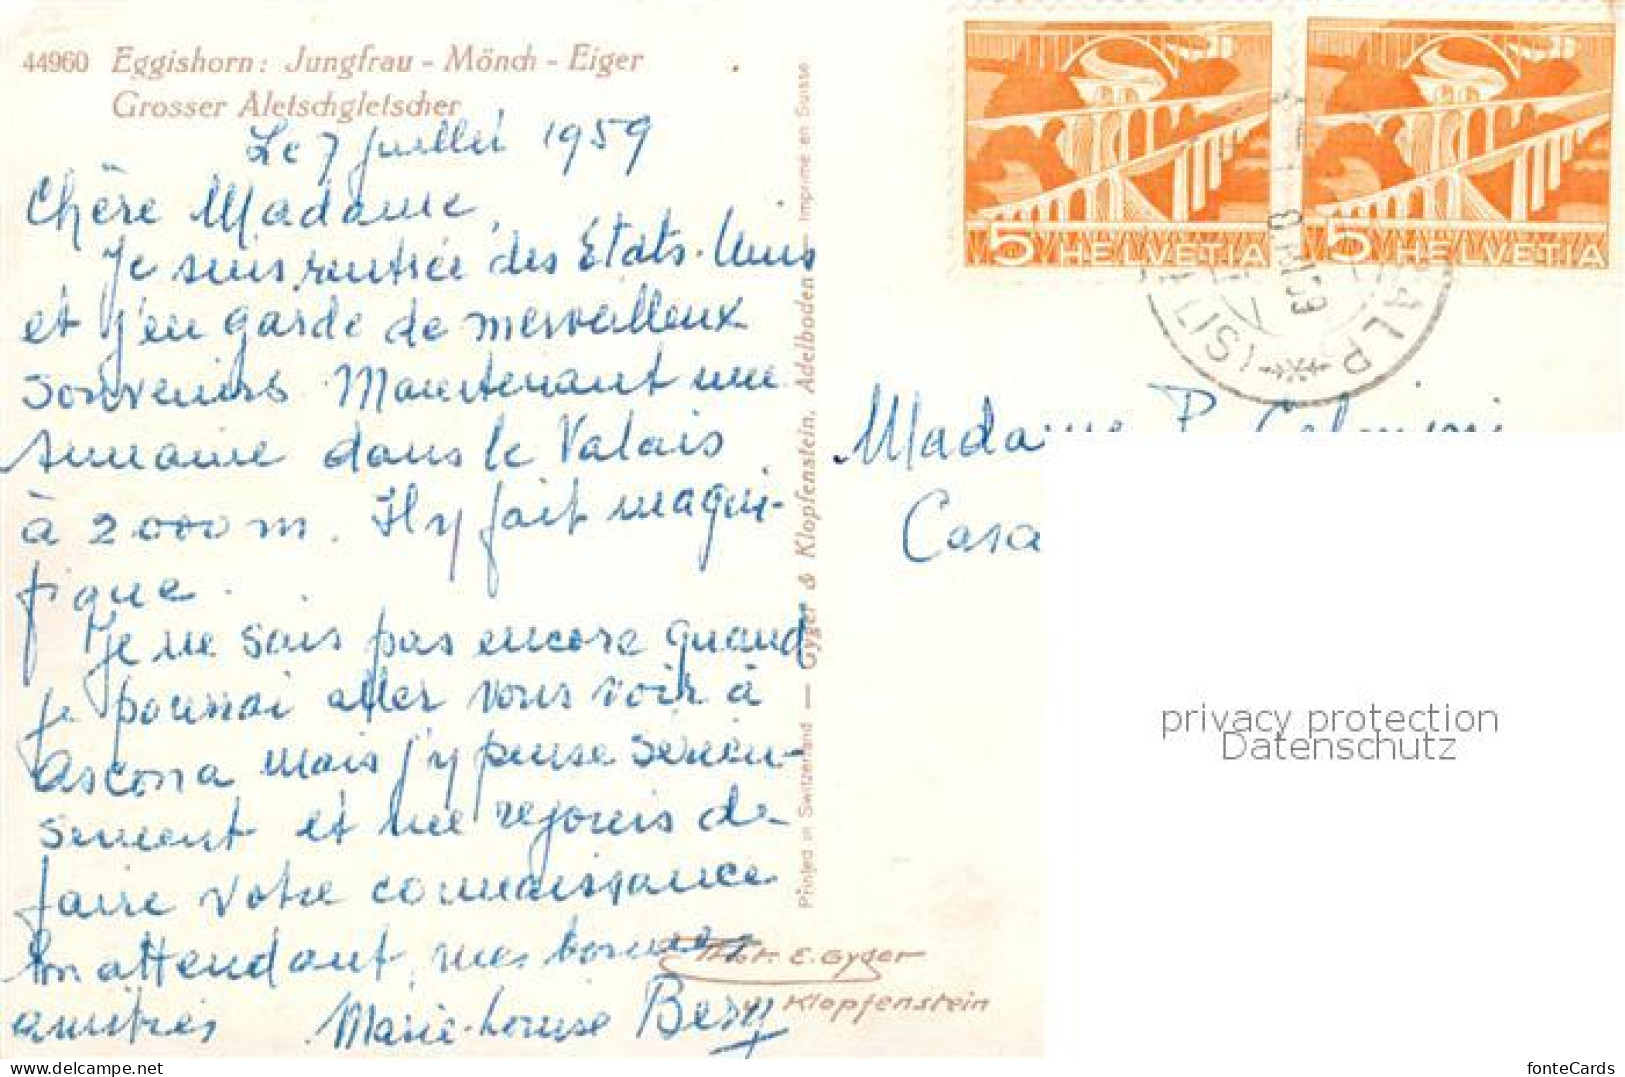 44960 Eggishorn: Jungfrau - Mönch - Eiger
Grosser Aletschgletscher
Le 7 juillet 1959
Chère Madame,
Je suis rentrée des Etats-Unis
et j'en garde de merveilleux
souvenirs. Maintenant une
semaine dans le Valais
à 2000 m. Il y fait magni-
fique.
Je ne sais pas encore quand
je pourrai aller vous voir à
Ascona mais j'y pense sérieu-
sement et me réjouis de
faire votre connaissance
En attendant, mes bonnes
amitiés Marie-Louise
Phot. E. Gyger
Klopfenstein
Printed in Switzerland — Gyger & Klopfenstein, Adelboden — Imprimé en Suisse
5 HELVETIA
5 HELVETIA
ALP (SITT
Madame P.
Casa
privacy protection
Datenschutz
fonteCards